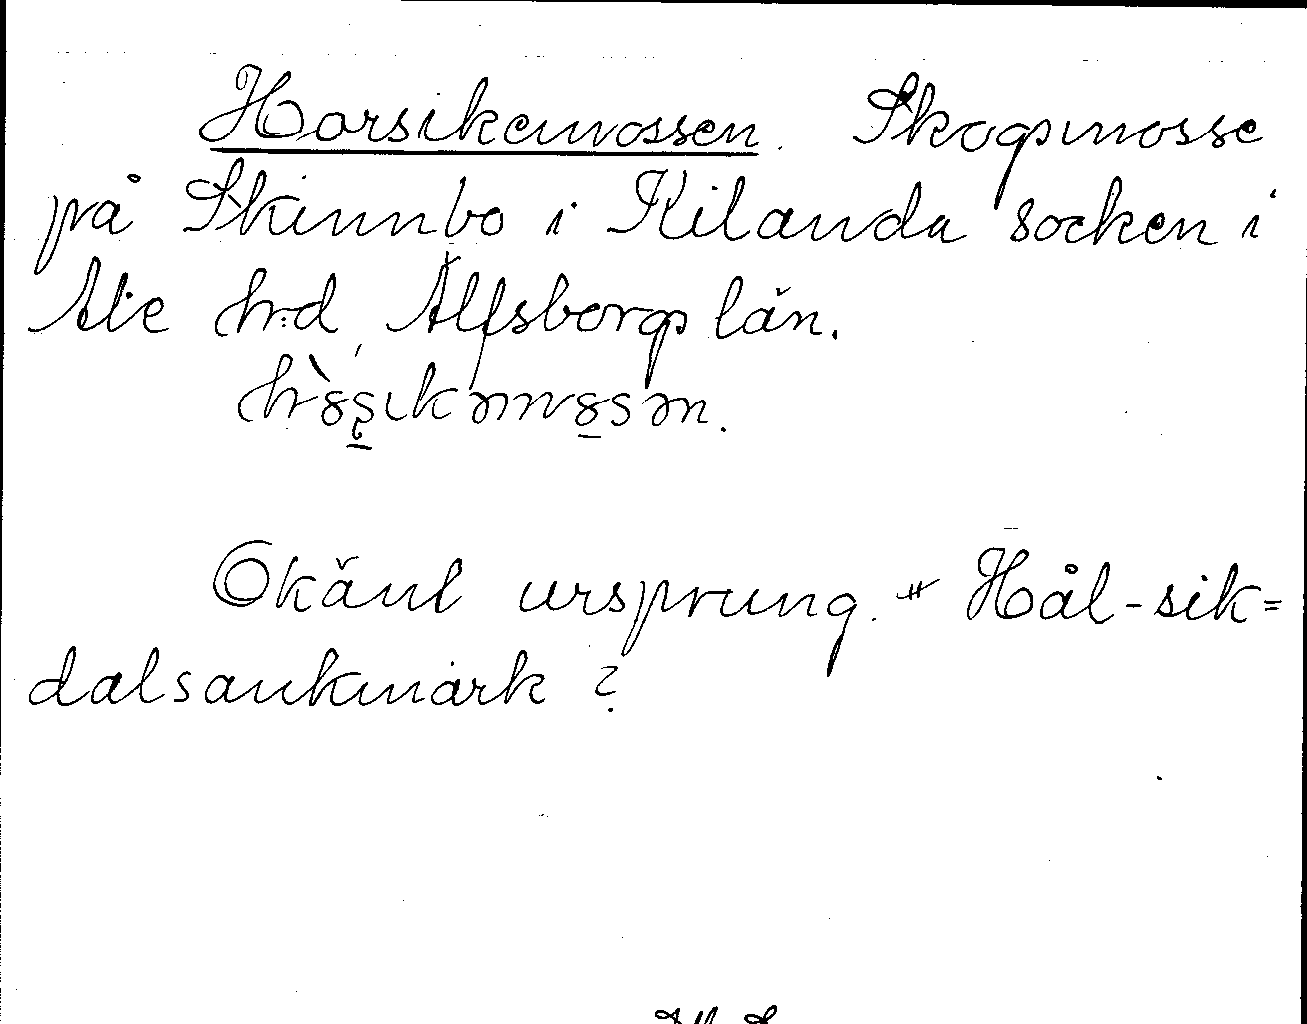 Horsikemossen. Skogsmosse
på Skinnbo i Kilanda socken i
Ale h:d, Älfsborgs län.
Okänt ursprung. Hål-sik-
dalsankmark?